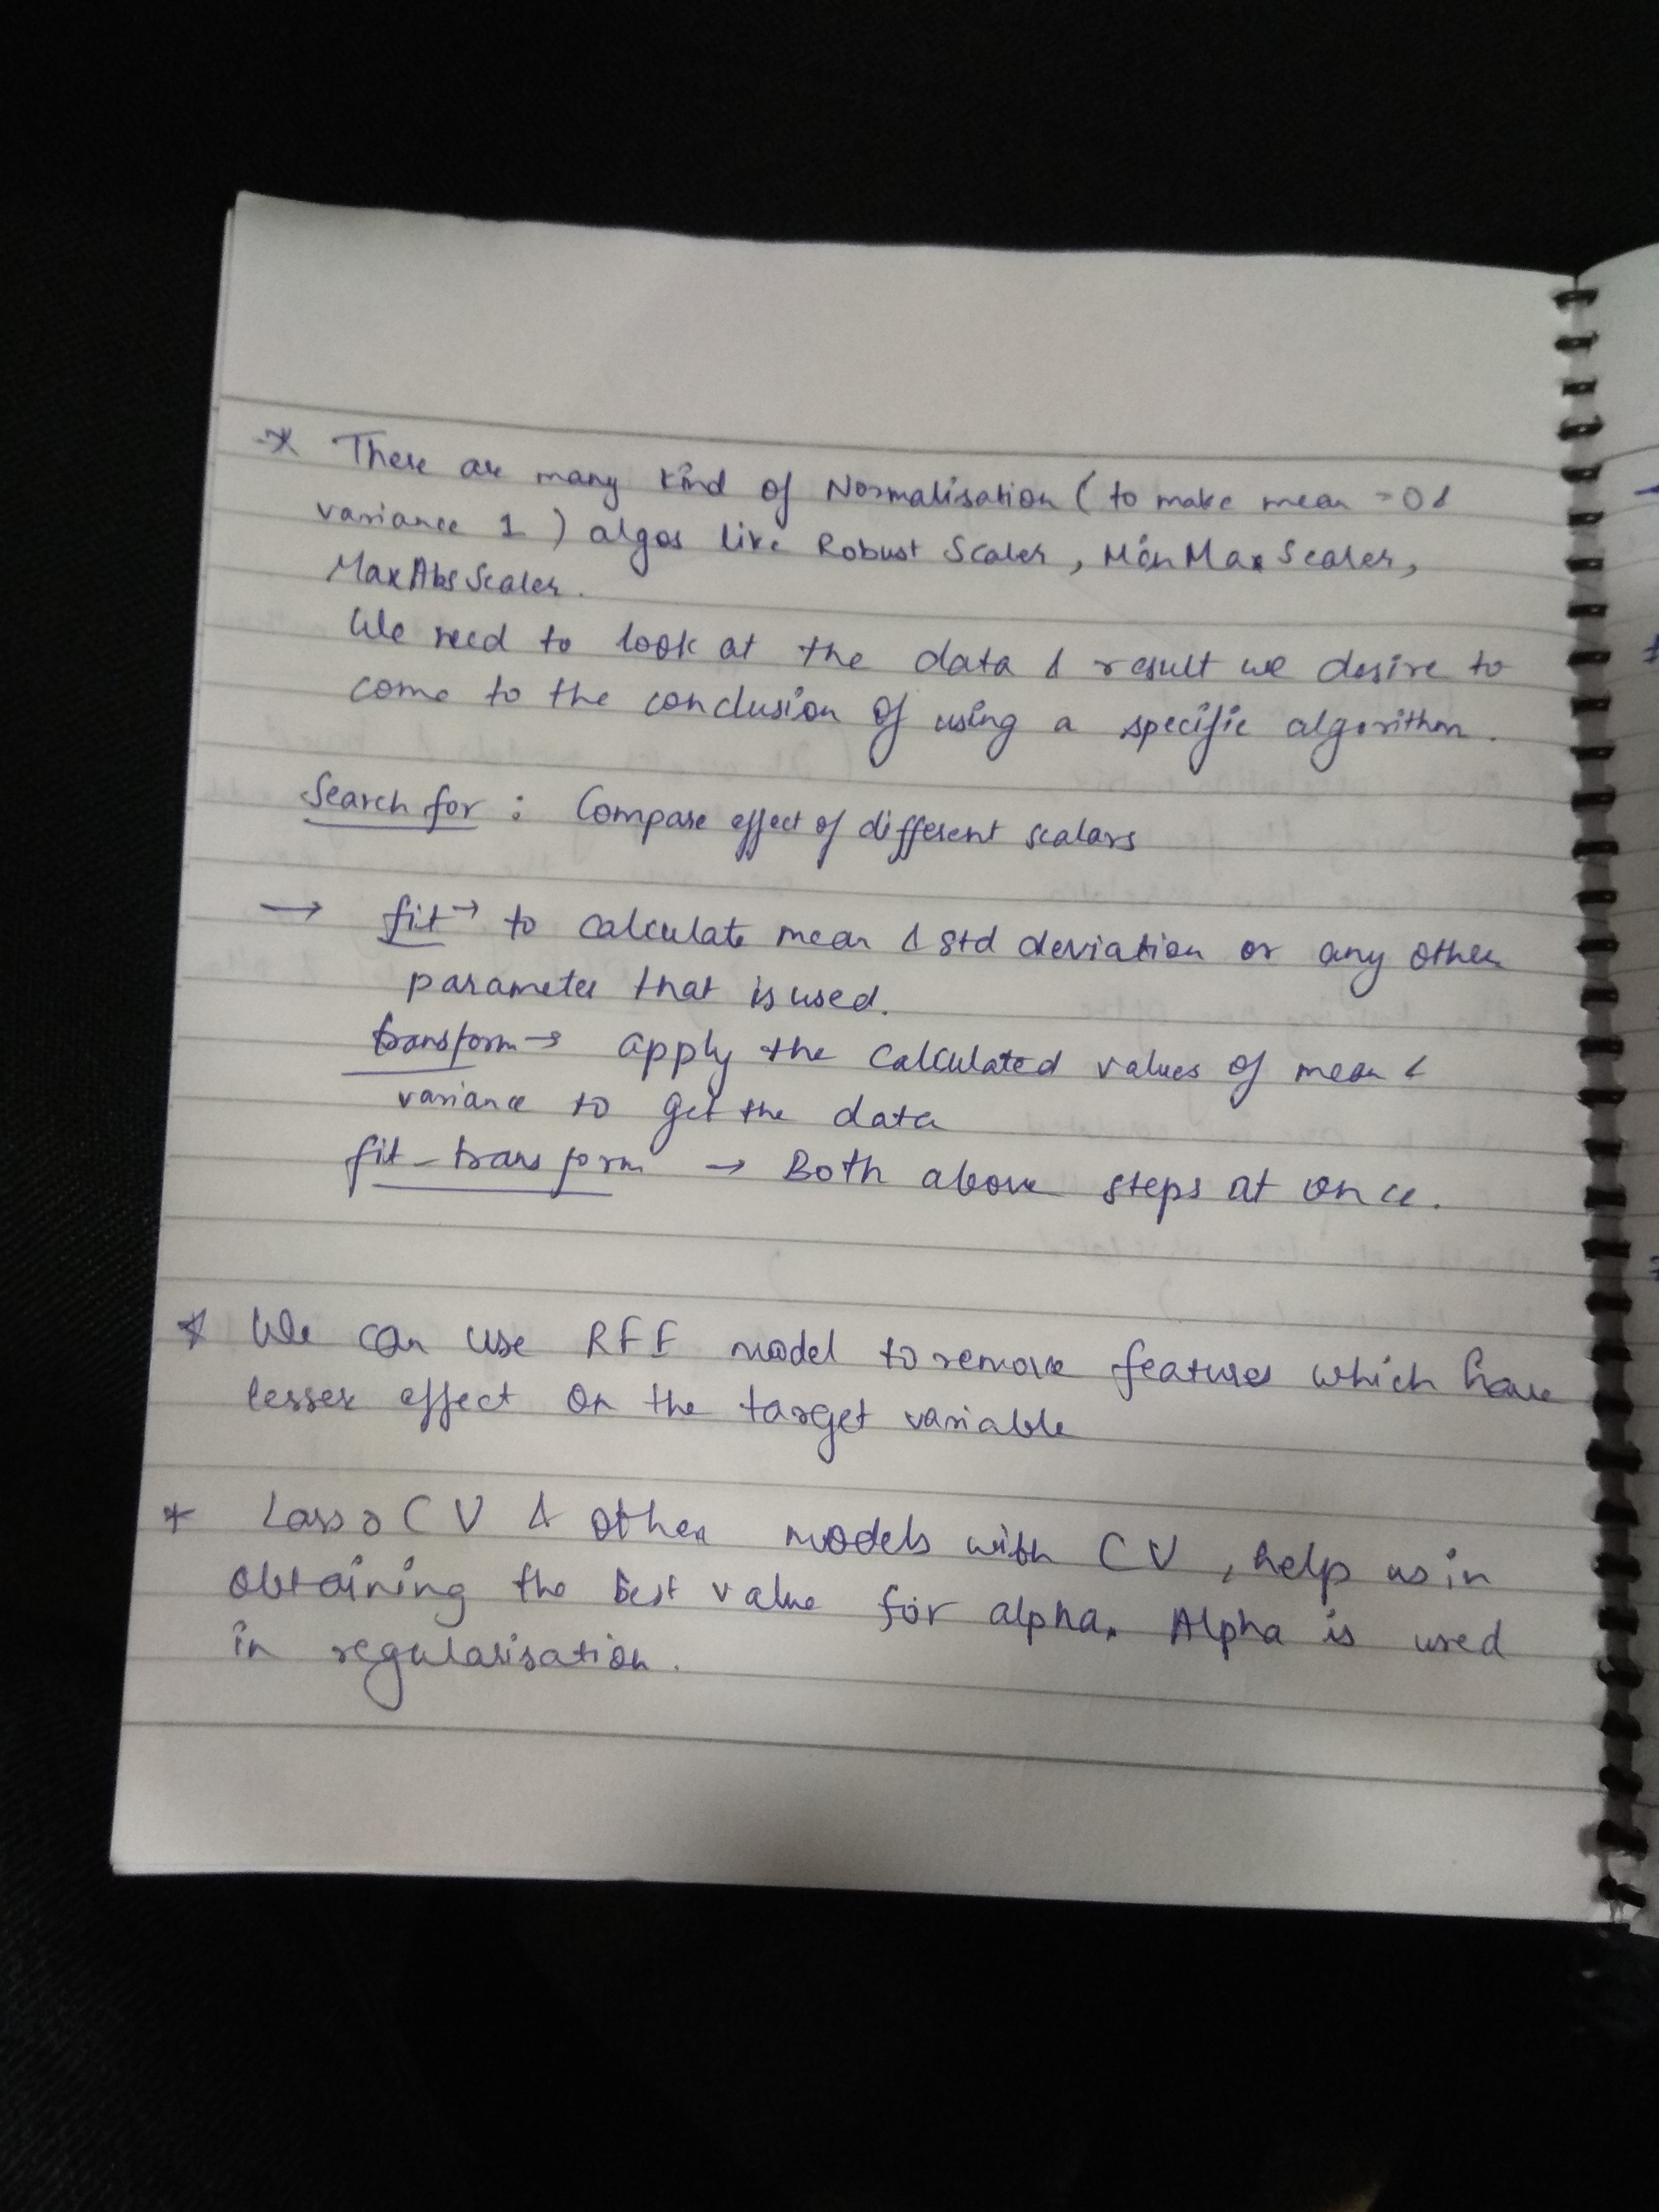 * There are many kind of Normalisation ( to make mean = 0 &
variance 1 ) algos like Robust Scaler, MinMaxScaler,
MaxAbsScaler.
We need to look at the data & result we desire to
come to the conclusion of using a specific algorithm.
Search for : Compare effect of different scalars
→ fit → to calculate mean & std deviation or any other
parameter that is used.
transform → apply the calculated values of mean &
variance to get the data
fit_transform → Both above steps at once.
* We can use RFE model to remove features which have
lesser effect on the target variable
* Lasso CV & other models with CV, help us in
obtaining the best value for alpha. Alpha is used
in regularisation.